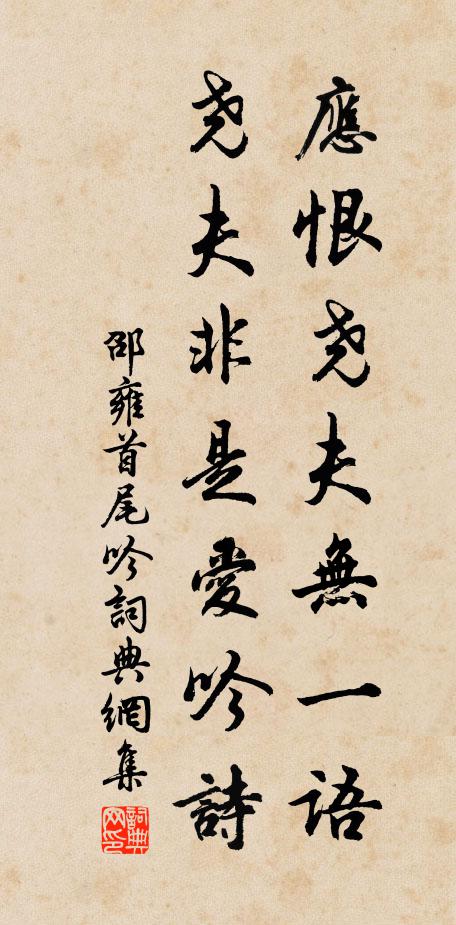 應恨尧夫無一语
尧夫非是愛吟詩
邵雍首尾吟詞典網集
詞典网印